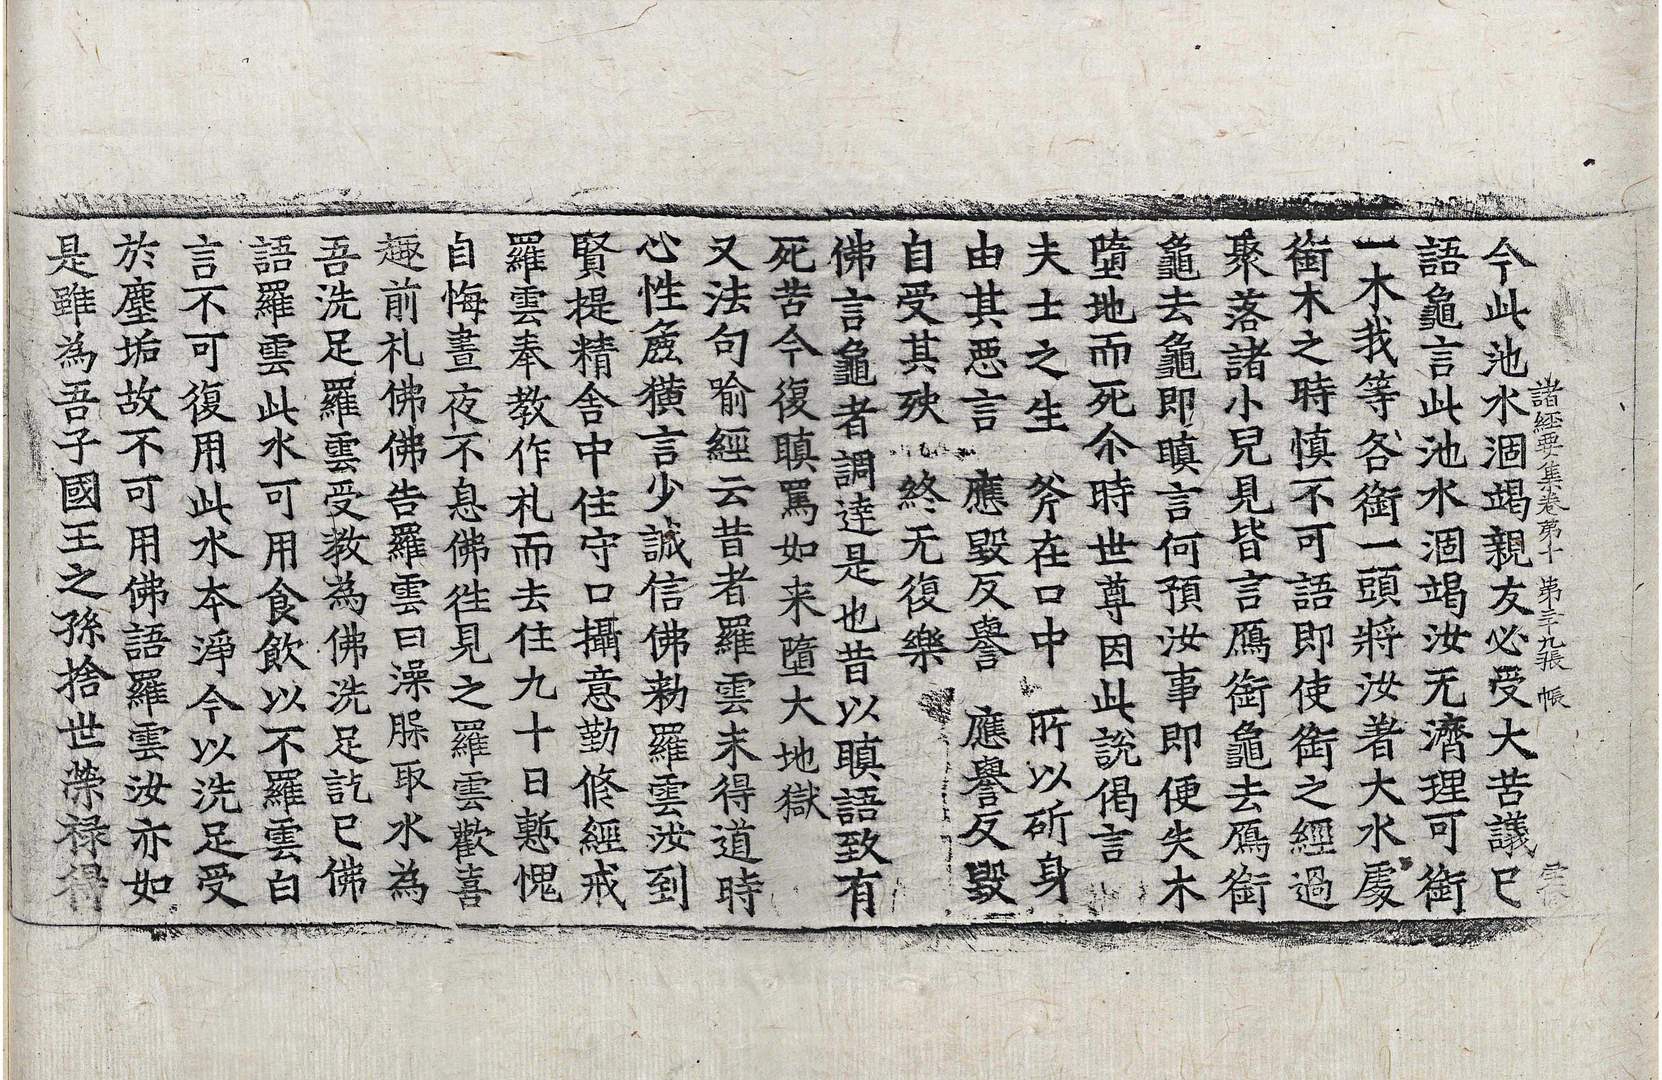 諸經要集卷第十 第三十九張 帳
今此池水涸竭親友必受大苦議已
語龜言此池水涸竭汝无濟理可銜
一木我等各銜一頭將汝著大水處
銜木之時慎不可語即使銜之經過
聚落諸小兒見皆言鴈銜龜去鴈銜
龜去龜即瞋言何預汝事即便失木
墮地而死尒時世尊因此說偈言
夫士之生 斧在口中 所以斫身
由其惡言 應毀反譽 應譽反毀
自受其殃 終无復樂
佛言龜者調達是也昔以瞋語致有
死苦今復瞋罵如来墮大地獄
又法句喻經云昔者羅雲未得道時
心性麁獷言少誠信佛勑羅雲汝到
賢提精舍中住守口攝意勤修經戒
羅雲奉教作礼而去住九十日慙愧
自悔晝夜不息佛往見之羅雲歡喜
趣前礼佛佛告羅雲曰澡脲取水為
吾洗足羅雲受教為佛洗足訖已佛
語羅雲此水可用食飲以不羅雲白
言不可復用此水本淨今以洗足受
於塵垢故不可用佛語羅雲汝亦如
是雖為吾子國王之孫捨世荣禄得